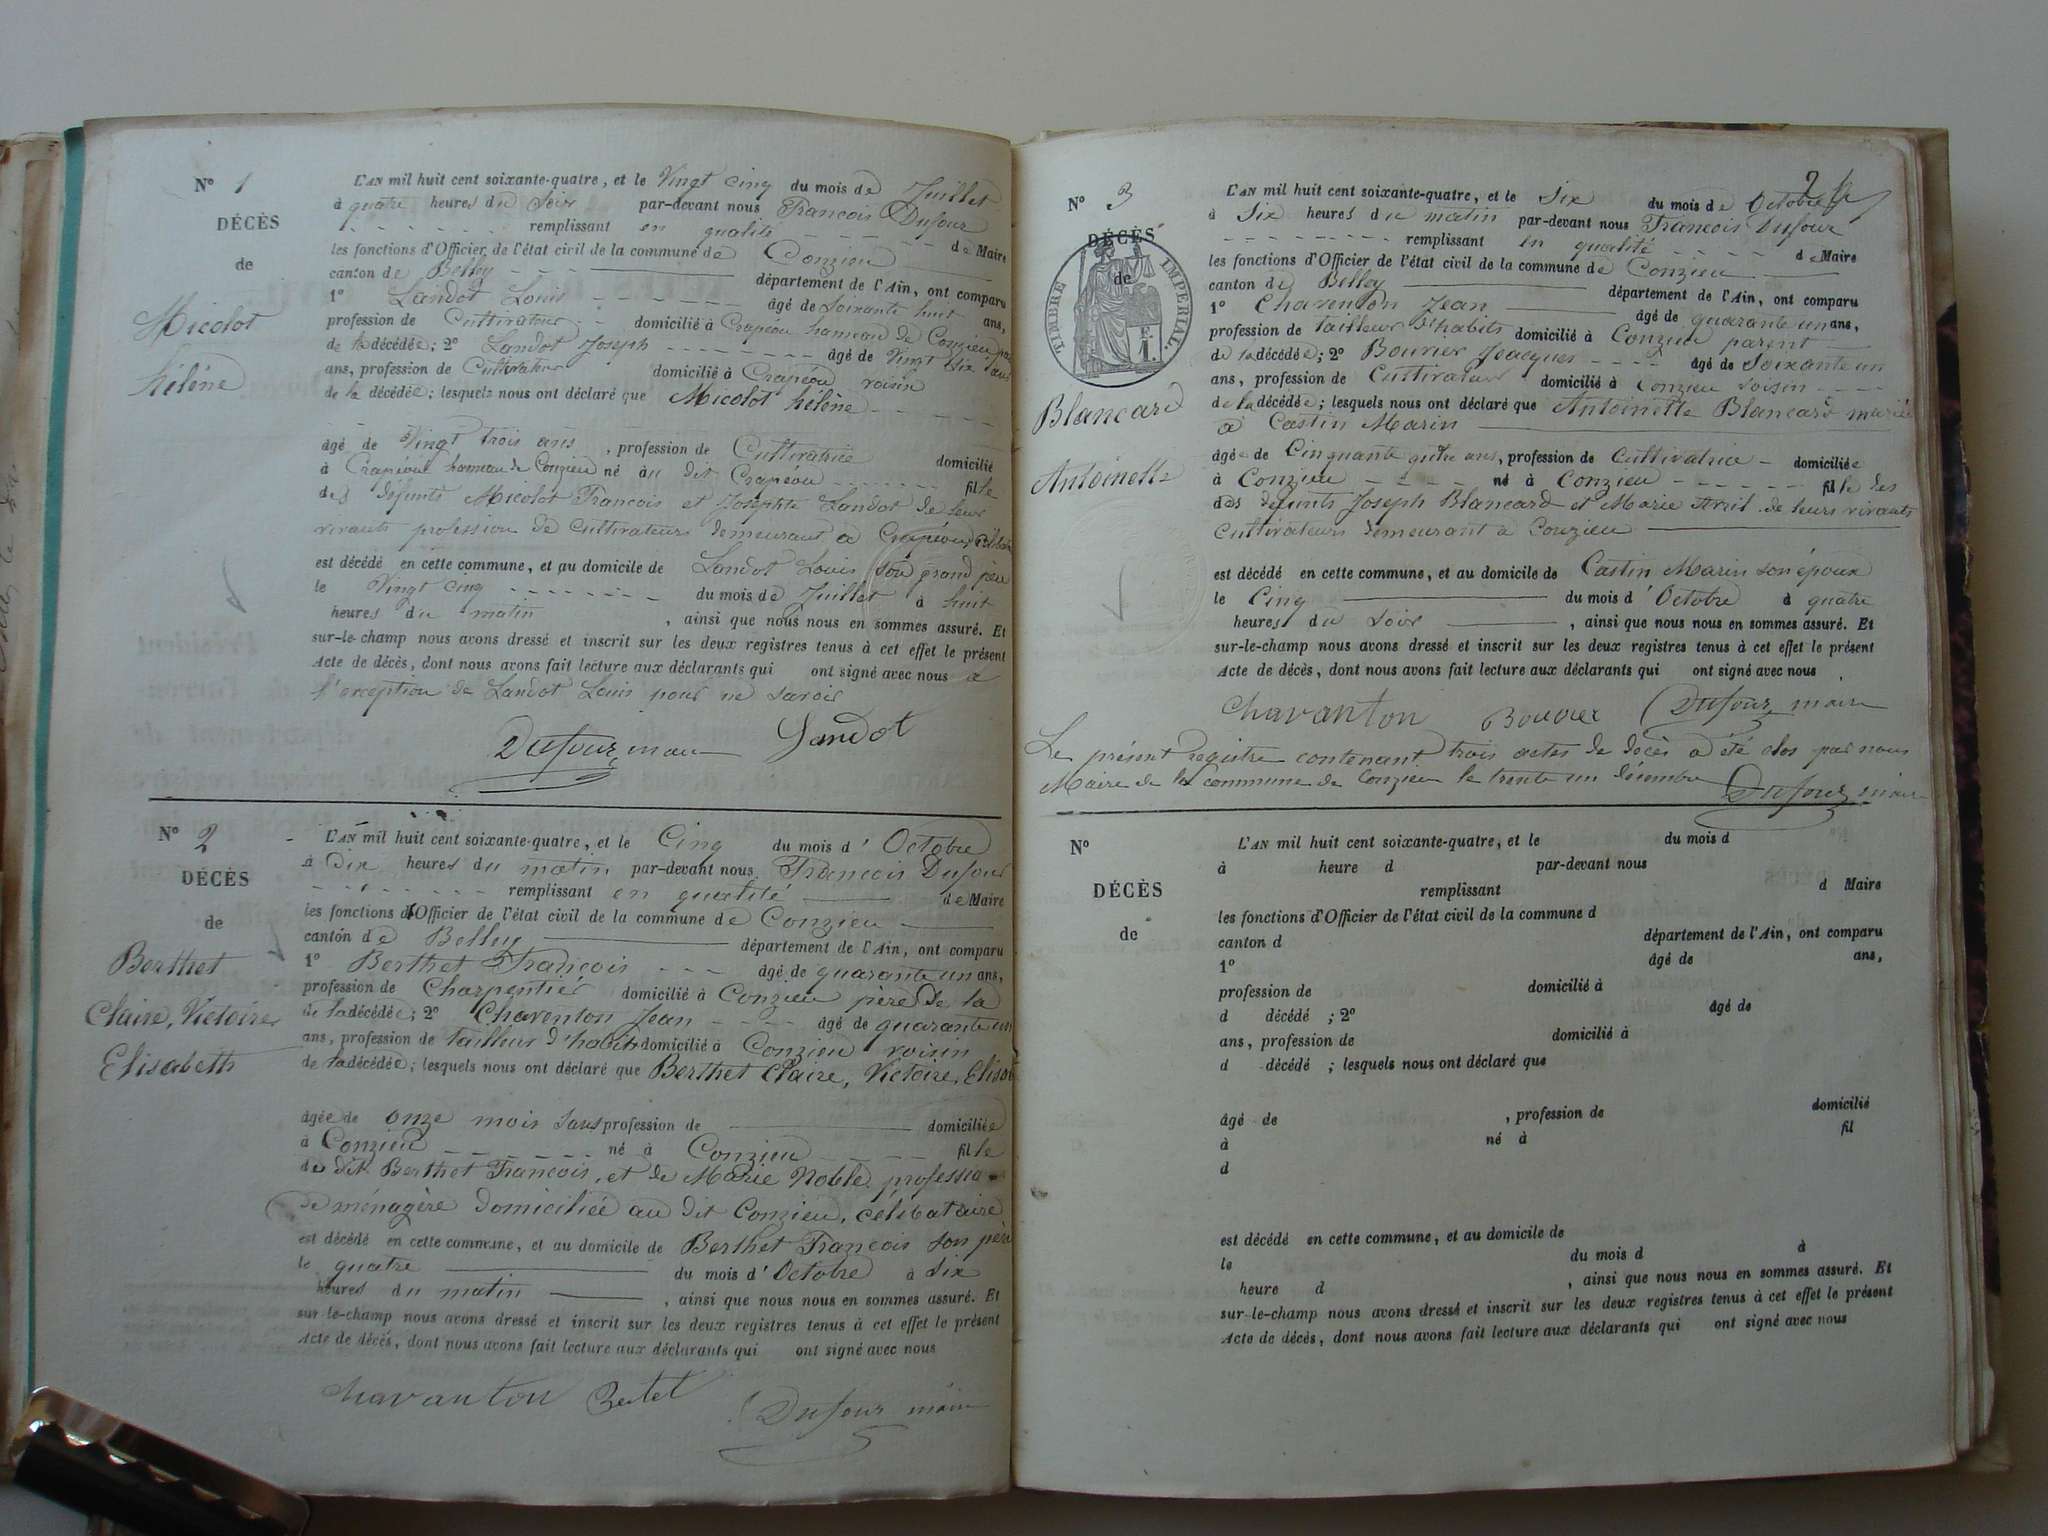 N° 1
DÉCÈS
de
Micolot
hélène
L'AN mil huit cent soixante-quatre, et le Vingt cinq du mois de Juillet
à quatre heures du soir par-devant nous François Dufour
remplissant en qualité de Maire
les fonctions d'Officier de l'état civil de la commune de Conzieu
canton de Belley département de l'Ain, ont comparu
1° Landot Louis âgé de Soixante huit ans,
profession de Cultivateur domicilié à Crapéou hameau de Conzieu
de la décédée; 2° Landot Joseph âgé de Vingt six
ans, profession de Cultivateur domicilié à Crapéou voisin
de la décédée; lesquels nous ont déclaré que Micolot hélène
âgé de Vingt trois ans, profession de Cultivatrice domicilié
à Crapéou hameau de Conzieu né au dit Crapéou fille
des défunts Micolot François et Josephte Landot de leur
vivants profession de Cultivateurs demeurant a Crapéou
est décédé en cette commune, et au domicile de Landot Louis son grand père
le Vingt cinq du mois de Juillet à huit
heures du matin, ainsi que nous nous en sommes assuré. Et
sur-le-champ nous avons dressé et inscrit sur les deux registres tenus à cet effet le présent
Acte de décès, dont nous avons fait lecture aux déclarants qui ont signé avec nous a
l'exception de Landot Louis pour ne savoir
Dufour maire Landot
N° 2
DÉCÈS
de
Berthet
Claire, Victoire,
Elisabeth
L'AN mil huit cent soixante-quatre, et le Cinq du mois d'Octobre
à Dix heures du matin par-devant nous François Dufour
remplissant en qualité de Maire
les fonctions d'Officier de l'état civil de la commune de Conzieu
canton de Belley département de l'Ain, ont comparu
1° Berthet François âgé de quarante un ans,
profession de Charpentier domicilié à Conzieu père de la
de la décédée; 2° Chaventon Jean âgé de quarante un
ans, profession de tailleur d'habits domicilié à Conzieu voisin
de la décédée; lesquels nous ont déclaré que Berthet Claire, Victoire,
âgée de onze mois sans profession de domiciliée
à Conzieu né à Conzieu fille
de dit Berthet François, et de Marie Noble profession
de ménagère domiciliée au dit Conzieu, célibataire
est décédé en cette commune, et au domicile de Berthet François son père
le quatre du mois d'Octobre à six
heures du matin, ainsi que nous nous en sommes assuré. Et
sur-le-champ nous avons dressé et inscrit sur les deux registres tenus à cet effet le présent
Acte de décès, dont nous avons fait lecture aux déclarants qui ont signé avec nous
Chavanton Bertet Dufour maire
2
N° 3
DÉCÈS
de
TIMBRE IMPERIAL
1.
Blancard
Antoinette
L'AN mil huit cent soixante-quatre, et le Six du mois de Octobre
à Six heures du matin par-devant nous François Dufour
remplissant en qualité de Maire
les fonctions d'Officier de l'état civil de la commune de Conzieu
canton de Belley département de l'Ain, ont comparu
1° Chaventon Jean âgé de quarante un ans,
profession de tailleur d'habits domicilié à Conzieu parent
de la décédée; 2° Bouvier Jeacques âgé de Soixante un
ans, profession de Cultivateur domicilié à Conzieu voisin
de la décédée; lesquels nous ont déclaré que Antoinette Blancard mariée
a Castin Marin
âgée de Cinquante quatre ans, profession de Cultivatrice domiciliée
à Conzieu né à Conzieu fille des
des défunts Joseph Blancard et Marie Avril de leurs vivants
Cultivateurs demeurant a Conzieu
est décédé en cette commune, et au domicile de Castin Marin son époux
le Cinq du mois d'Octobre à quatre
heures du soir, ainsi que nous nous en sommes assuré. Et
sur-le-champ nous avons dressé et inscrit sur les deux registres tenus à cet effet le présent
Acte de décès, dont nous avons fait lecture aux déclarants qui ont signé avec nous
Chavanton Bouvier Dufour maire
Le présent Registre contenant trois actes de décès a été clos par nous
Maire de la commune de Conzieu le trente un décembre Dufour maire
N°
DÉCÈS
de
L'AN mil huit cent soixante-quatre, et le du mois d
à heure d par-devant nous
remplissant d Maire
les fonctions d'Officier de l'état civil de la commune d
canton d département de l'Ain, ont comparu
1° âgé de ans,
profession de domicilié à
d décédé ; 2° âgé de
ans, profession de domicilié à
d décédé ; lesquels nous ont déclaré que
âgé de , profession de domicilié
à né à fil
d
est décédé en cette commune, et au domicile de
le du mois d à
heure d , ainsi que nous nous en sommes assuré. Et
sur-le-champ nous avons dressé et inscrit sur les deux registres tenus à cet effet le présent
Acte de décès, dont nous avons fait lecture aux déclarants qui ont signé avec nous